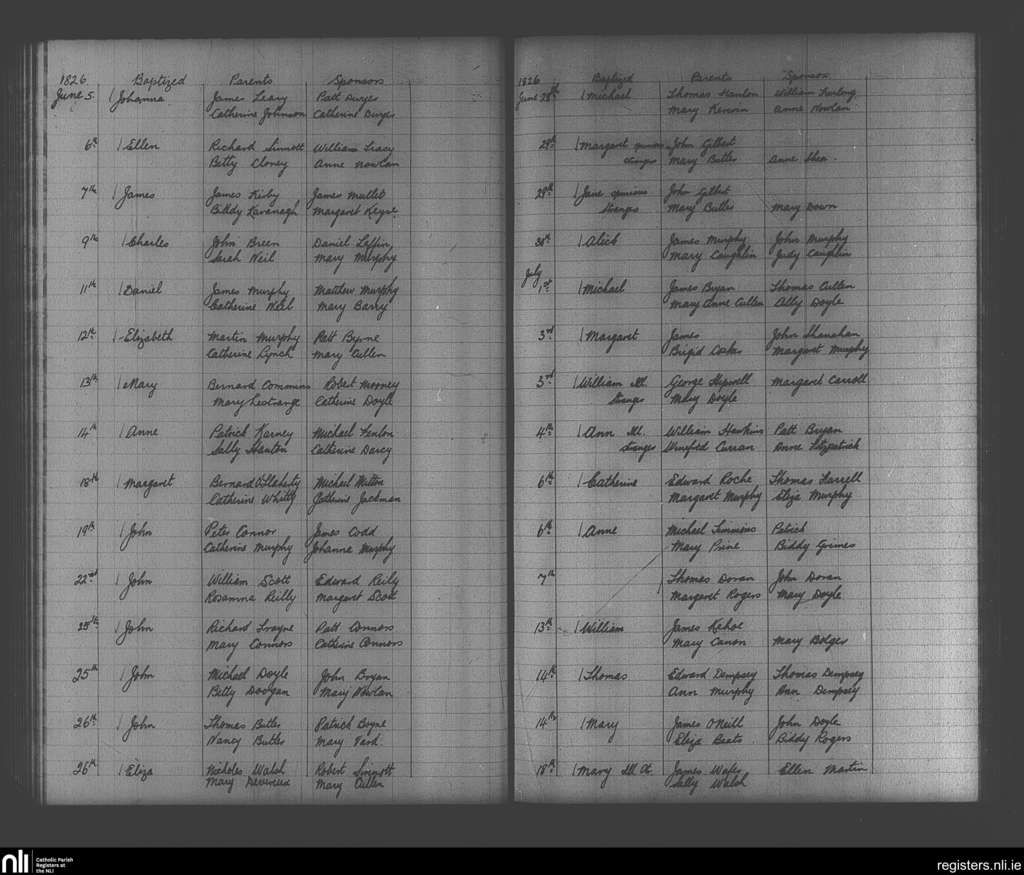 1826 Baptized Parents Sponsors
June 5. Johanna James Leary Patt Dwyer
Catherine Johnson Catherine Dwyer
6th Ellen Richard Sinnott William Leacy
Betty Cloney Anne Nowlan
7th James James Kirby James Mullet
Biddy Kavanagh Margaret
9th Charles John Breen Daniel Laffin
Sarah Neil Mary Murphy
11th Daniel James Murphy Matthew Murphy
Catherine Neil Mary Barry
12th Elizabeth Martin Murphy Patt Byrne
Catherine Lynch Mary Cullen
13th Mary Bernard Commins Robert Mooney
Mary Lestrange Catherine Doyle
14th Anne Patrick Karney Michael Hanlon
Sally Hanlon Catherine Darcy
18th Margaret Bernard O'Flaherty Michael
Catherine Whitty Catherine Jackman
19th John Peter Connor James Codd
Catherine Murphy Johanna Murphy
22nd John William Scott Edward Reily
Rosanna Reilly Margaret Scott
25th John Richard Patt Connors
Mary Connors Catherine Connors
25th John Michael Doyle John Bryan
Betty Doogan Mary Nowlan
26th John Thomas Butler Patrick Boyne
Nancy Butler Mary
26th Eliza Nicholas Walsh Robert Sinnott
Mary Devereux Mary Cullen
1826 Baptized Parents Sponsors
June 28th Michael Thomas Hanlon William Furlong
Mary Anne Nowlan
29th Margaret spurious John Gilbert
Stranges Mary Butler Anne Shea.
29th Jane spurious John Gilbert
Stranges Mary Butler Mary Down
30th Alice James Murphy John Murphy
Mary Caughlin Judy Caughlin
July
1st Michael James Bryan Thomas Cullen
Mary Anne Cullen Ally Doyle
3rd Margaret James John Shanahan
Brigid Margaret Murphy
3rd William Ill. George Hipwell Margaret Carroll
Stranges Mary Doyle
4th Ann Ill. William Hawkins Patt Bryan
Stranges Winefred Curran Anne Fitzpatrick
6th Catherine Edward Roche Thomas Farrell
Margaret Murphy Eliza Murphy
6th Anne Michael Simmons Patrick
Mary Biddy Grimes
7th Thomas Doran John Doran
Margaret Rogers Mary Doyle
13th William James Kehoe
Mary Canon Mary Bolger
14th Thomas Edward Dempsey Thomas Dempsey
Ann Murphy Ann Dempsey
14th Mary James O'Neill John Doyle
Eliza Beats Biddy Rogers
18th Mary Ill. James Ellen Martin
Sally Walsh
nli Catholic Parish
Registers at
the NLI
registers.nli.ie